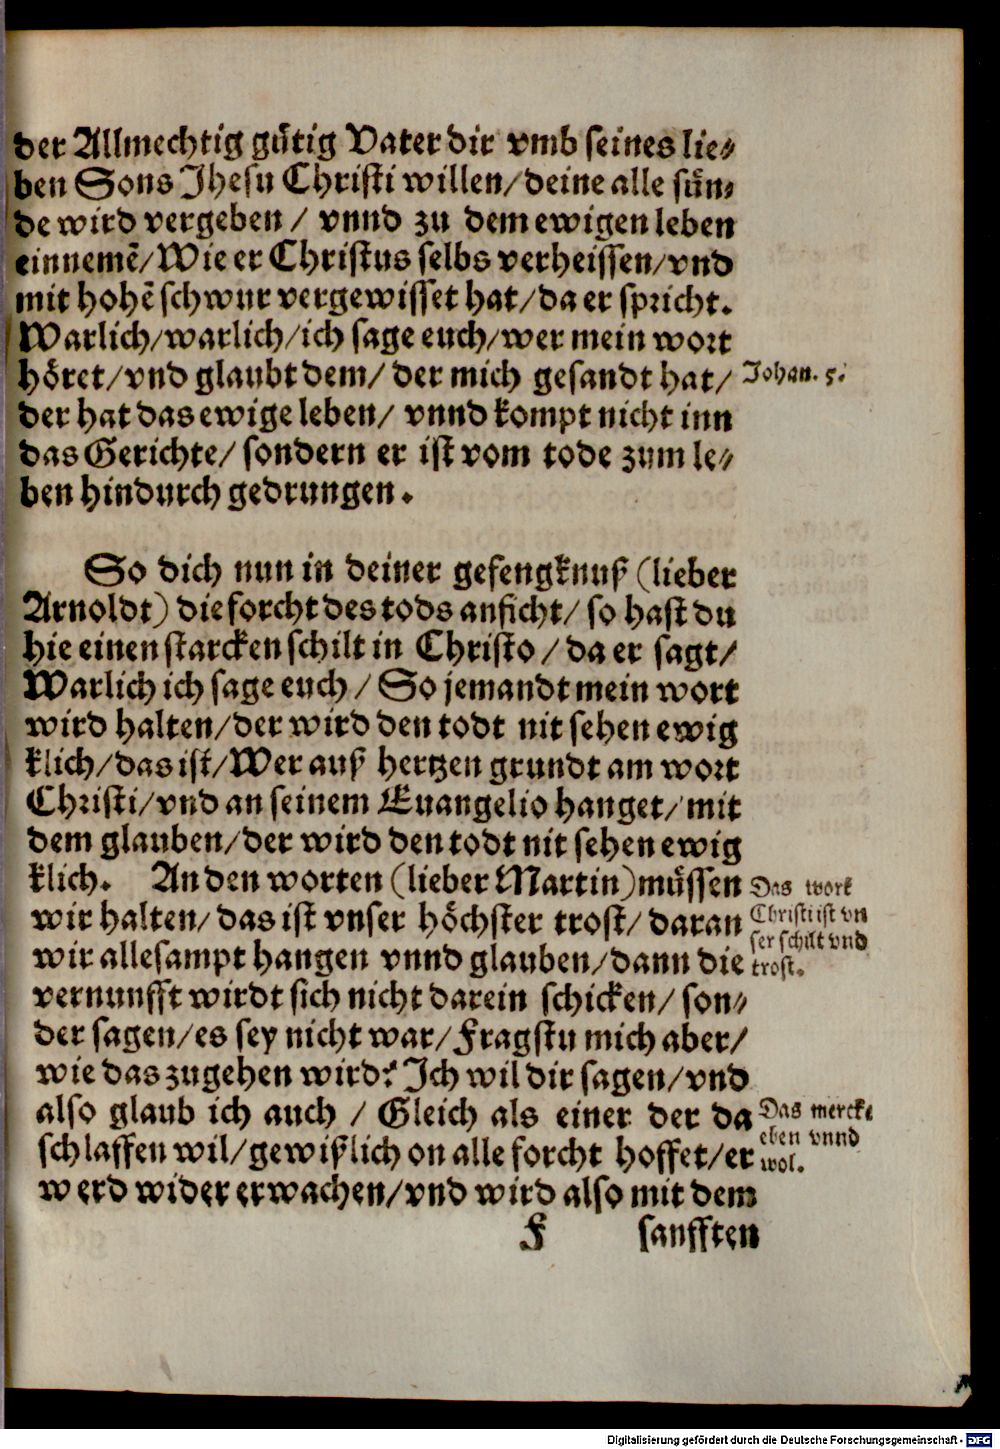 der Allmechtig gütig Vater dir vmb seines lie⸗
ben Sons Jhesu Christi willen/deine alle sün⸗
de wird vergeben / vnnd zu dem ewigen leben
einnemẽ/Wie er Christus selbs verheissen/vnd
mit hohẽ schwur vergewisset hat/da er spricht.
Warlich/warlich/ich sage euch/wer mein wort
höret/vnd glaubt dem/ der mich gesandt hat/
Johan. 5.
der hat das ewige leben/ vnnd kompt nicht inn
das Gerichte/ sondern er ist vom tode zum le⸗
ben hindurch gedrungen.
So dich nun in deiner gefengknuß (lieber
Arnoldt) die forcht des tods anficht/ so hast du
hie einen starcken schilt in Christo / da er sagt/
Warlich ich sage euch / So jemandt mein wort
wird halten/der wird den todt nit sehen ewig
klich/das ist/Wer auß hertzen grundt am wort
Christi/vnd an seinem Euangelio hanget/ mit
dem glauben/der wird den todt nit sehen ewig
klich. An den worten (lieber Martin) müssen
wir halten/ das ist vnser höchster trost/ daran
wir allesampt hangen vnnd glauben/dann die
Das wort
Christi ist vn
ser schilt vnd
trost.
vernunfft wirdt sich nicht darein schicken/ son⸗
der sagen/es sey nicht war/Fragstu mich aber/
wie das zugehen wird? Ich wil dir sagen/vnd
also glaub ich auch / Gleich als einer der da
schlaffen wil/gewißlich on alle forcht hoffet/er
Das mercke
eben vnnd
wol.
werd wider erwachen/vnd wird also mit dem
F sanfften
Digitalisierung gefördert durch die Deutsche Forschungsgemeinschaft - DFG